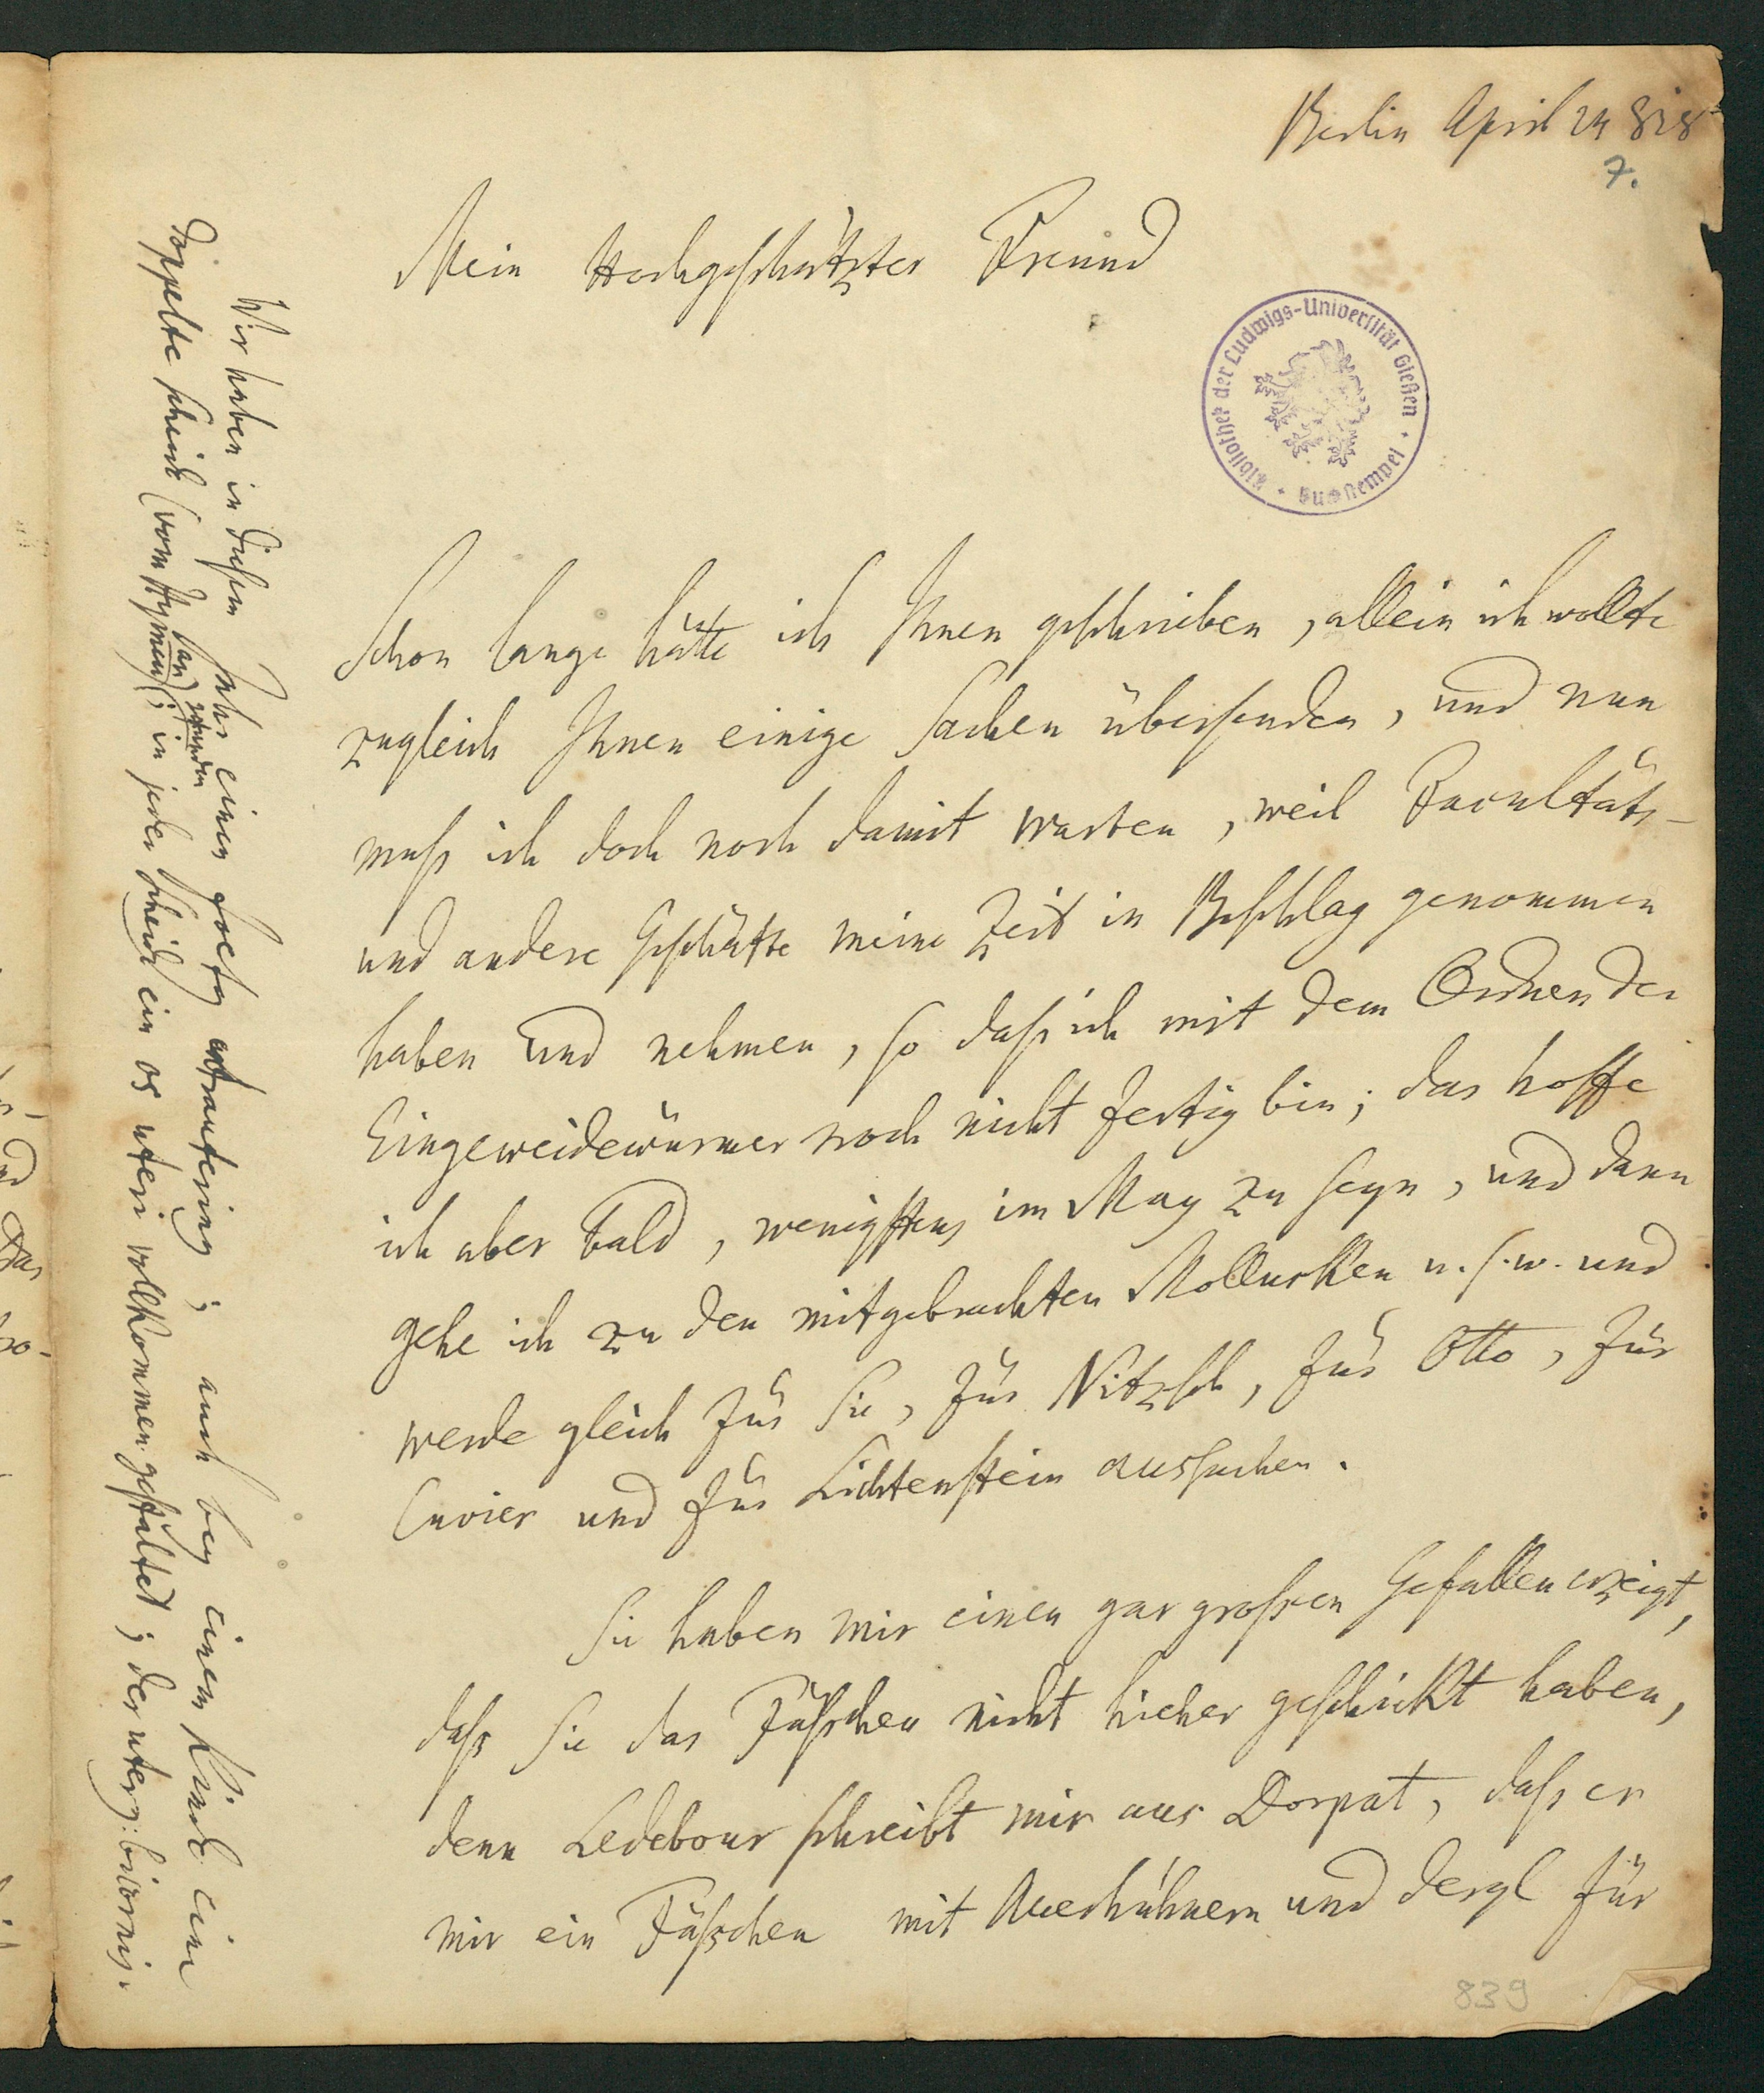 Berlin April 24 818
7.
Mein Hochgeschätzter Freund
Bibliothek der Ludwigs-Universität Gießen • Buchstempel •
Schon lange hätte ich Ihnen geschrieben, allein ich wollte
zugleich Ihnen einige Sachen übersenden, und nun
muß ich doch noch damit warten, weil Facultäts-
und andere Geschäfte meine Zeit in Beschlag genommen
haben und nehmen, so daß ich mit dem Ordnen der
Eingeweidewürmer noch nicht fertig bin; das hoffe
ich aber bald, wenigstens im May zu seyn, und dann
gehe ich zu den mitgebrachten Mollusken u.s.w. und
werde gleich für Sie, für Nitzsch, für Otto, für
Cuvier und für Lichtenstein aussuchen.
Sie haben mir einen gar großen Gefallen erzeigt,
daß Sie das Fäßchen nicht hieher geschickt haben,
denn Ledebour schreibt mir aus Dorpat, daß er
mir ein Fäßchen mit Auerhühnern und dergl für
839
Wir haben in diesem Jahr einen foetus extrauterinus; auch bey einem Kinde eine
doppelte Scheide (vom Hymen an); in jeder Scheide ein os uteri vollkommen gestaltet; der uterus bicornis.
das